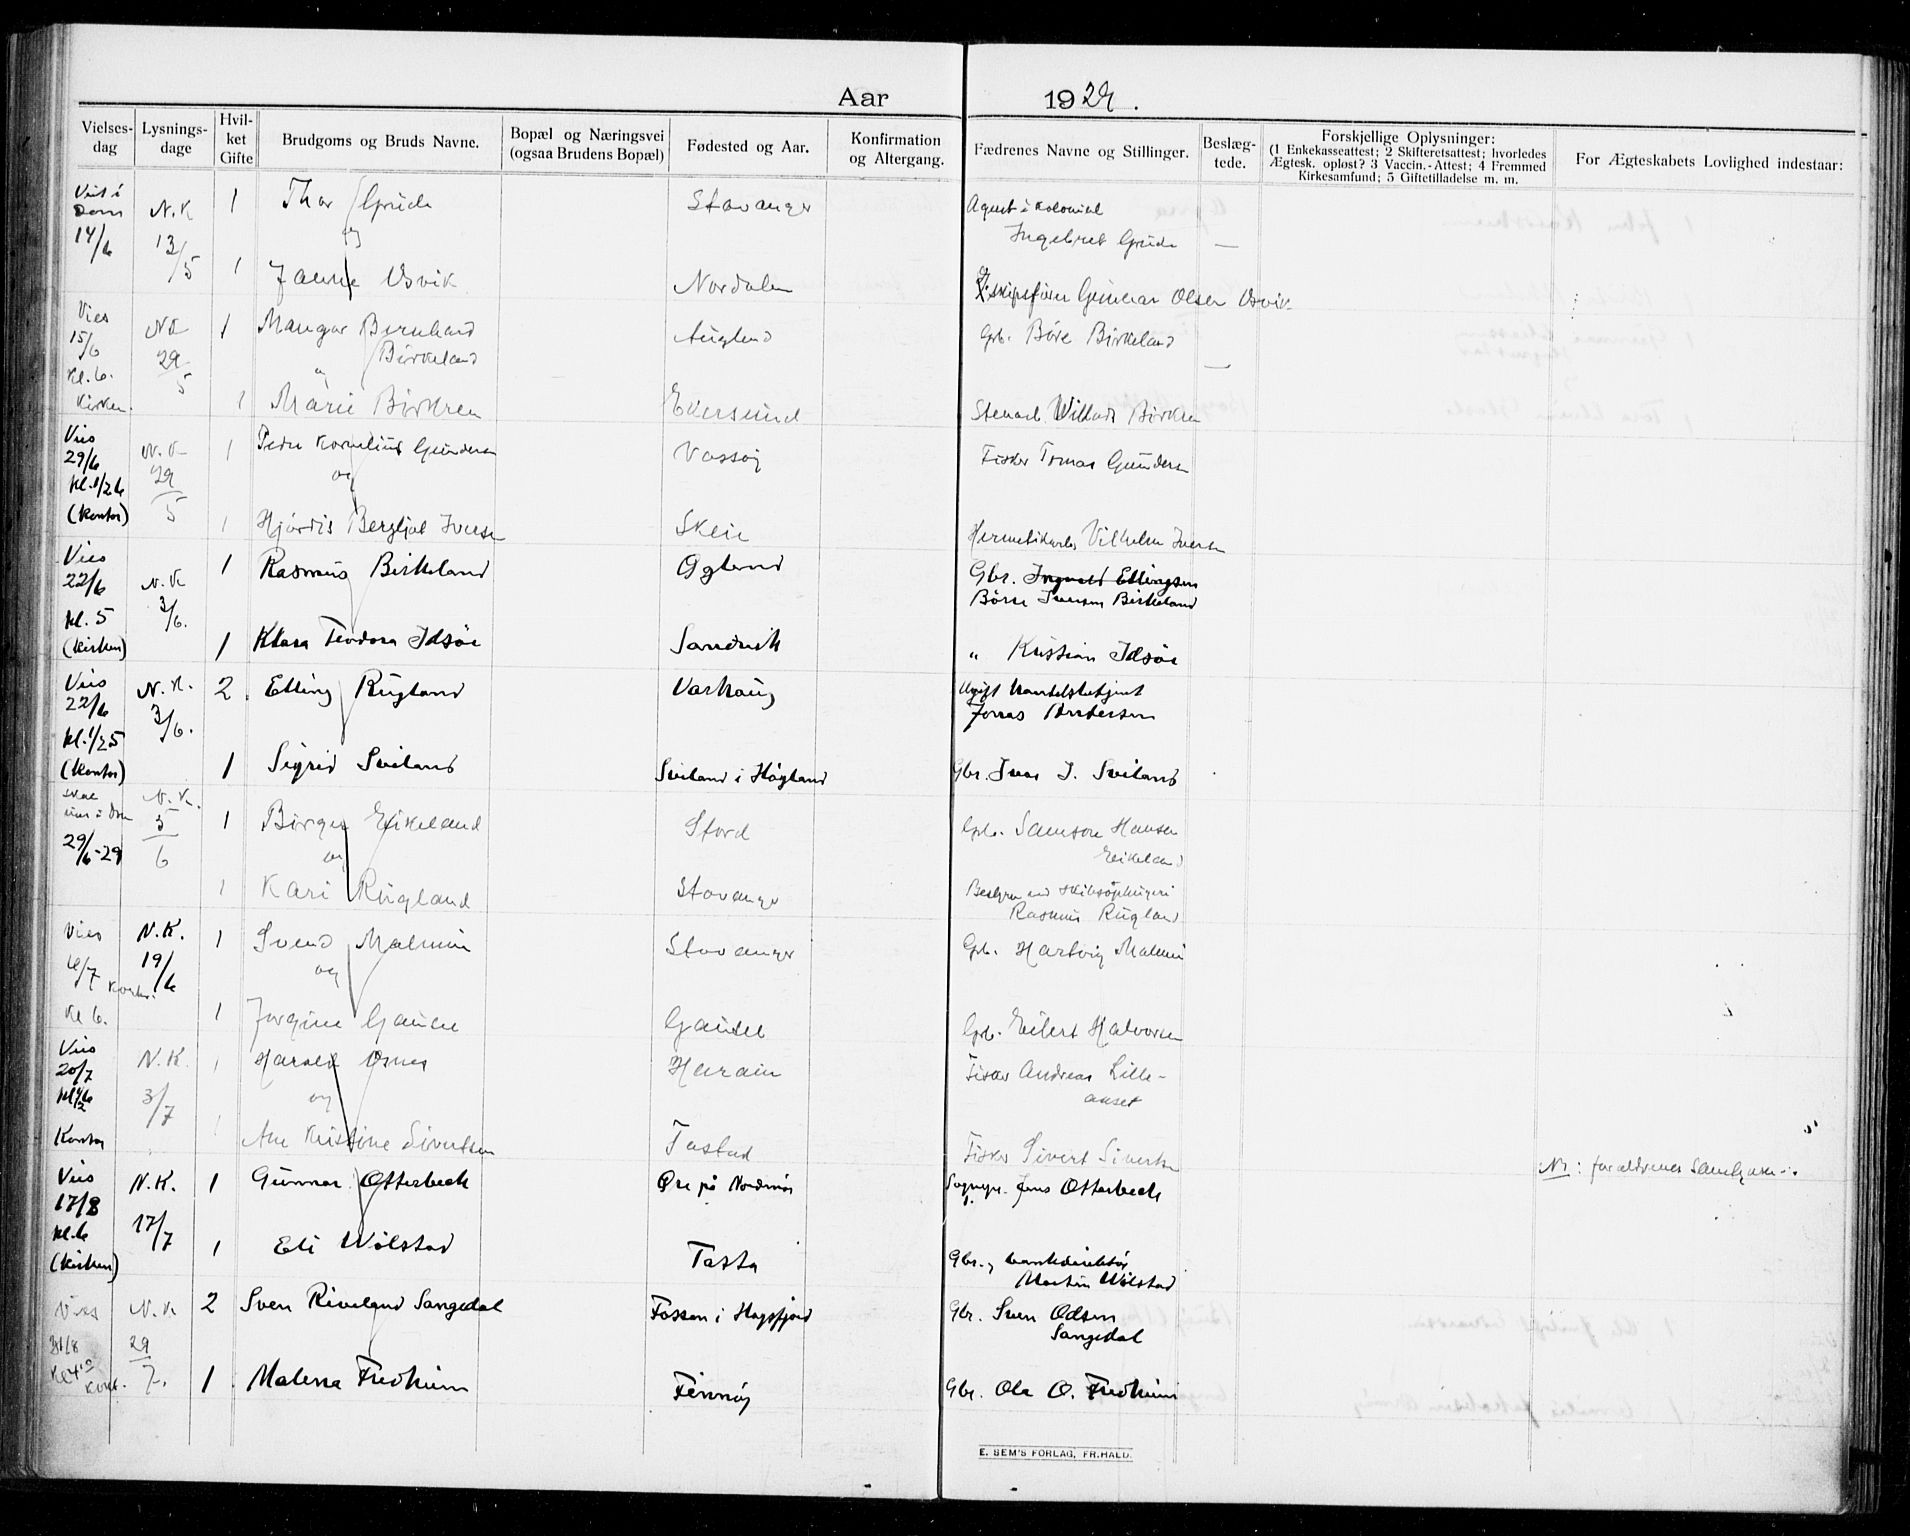 Aar 1929.
Vielses-dag
Lysnings-dage
Hvil-ket Gifte
Brudgoms og Bruds Navne.
Bopæl og Næringsvei (ogsaa Brudens Bopæl)
Fødested og Aar.
Konfirmation og Altergang.
Fædrenes Navne og Stillinger.
Beslæg-tede.
Forskjellige Oplysninger:
(1 Enkekasseattest; 2 Skifteretsattest; hvorledes
Ægtesk. opløst? 3 Vaccin.-Attest; 4 Fremmed
Kirkesamfund; 5 Giftetilladelse m. m.
For Ægteskabets Lovlighed indestaar:
Viet i Dom 14/6 N.K 13/5 1 Thor Grude Stavanger Agent i Kolonial
og Ingebret Grude —
1 Janne Osvik Nordalen Skipsfører Gunnar Olsen Osvik
Vies 15/6 Kl. 6. Kirken. NK 29/5 1 Mangor Bernhard Birkeland Auglend Grb. Båre Birkeland —
1 Marie Birkren Ekersund Willads Birkren
Vies 29/6 Kl. 1/2 6 (Kontor) N.K 29/5 1 Peder Kornelius Gundersen Vassøy Fisker Tomas Gundersen
og
1 Hjørdis Bergljot Iversen Skeie Vilhelm Iversen
Vies 22/6 Kl. 5 (Kirken) N.K 3/6. 1 Rasmus Birkeland Ogland Gbr. Ingvald Ellingsen
Børre Iversen Birkeland
1 Klara Teodora Idsøe Sandvik " Kristian Idsøe
Vies 22/6 Kl. 1/2 5 (Kontor) N.K. 3/6. 2. Elling Rugland Varhaug Ugift handelsbetjent
Jonas Andersen
1 Sigrid Sviland Sviland i Høyland Gbr. Ivar I. Sviland
29/6-29 N.K. 5/6 1 Birger Eikeland Stord Grb. Samson Hansen
Eikeland
og
1 Kari Rugland Stavanger Rasmus Rugland
Vies 6/7 Kontor. Kl 6. N.K. 19/6 1 Svend Malmin Stavanger Grb. Hartvig Malmin
og
1 Jorgine Gausel Gausel Grb. Eilert Halvorsen
Vies 20/7 Kl 1/2 6 Kontor N.K. 3/7 1 Harald Osnes Haram Fisker Andreas Lille-
og
1 Ane Kristine Sivertsen Tastad Fisker Sivert Sivertsen
Vies 17/8 Kl. 6 (Kirken) N.K. 17/7 1 Gunnar Otterbeck Øre på Nordmør Sognepr. Jens Otterbeck
1 Eli Wølstad Tasta Gbr., bankdirektør
Martin Wølstad
Vies 31/8 N.K 29/7. 2 Sven Riveland Sangedal Fossan i Høgsfjord Gbr. Sven Odsen
Sangedal
1 Malena Fredheim Finnøy Gbr. Ole O. Fredheim
E. SEM'S FORLAG, FR.HALD.